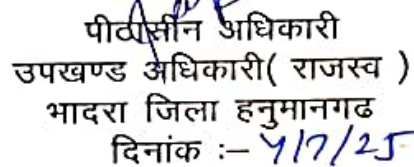 पीठासीन अधिकारी
उपखण्ड अधिकारी( राजस्व )
भादरा जिला हनुमानगढ
दिनांक :– 4/7/25